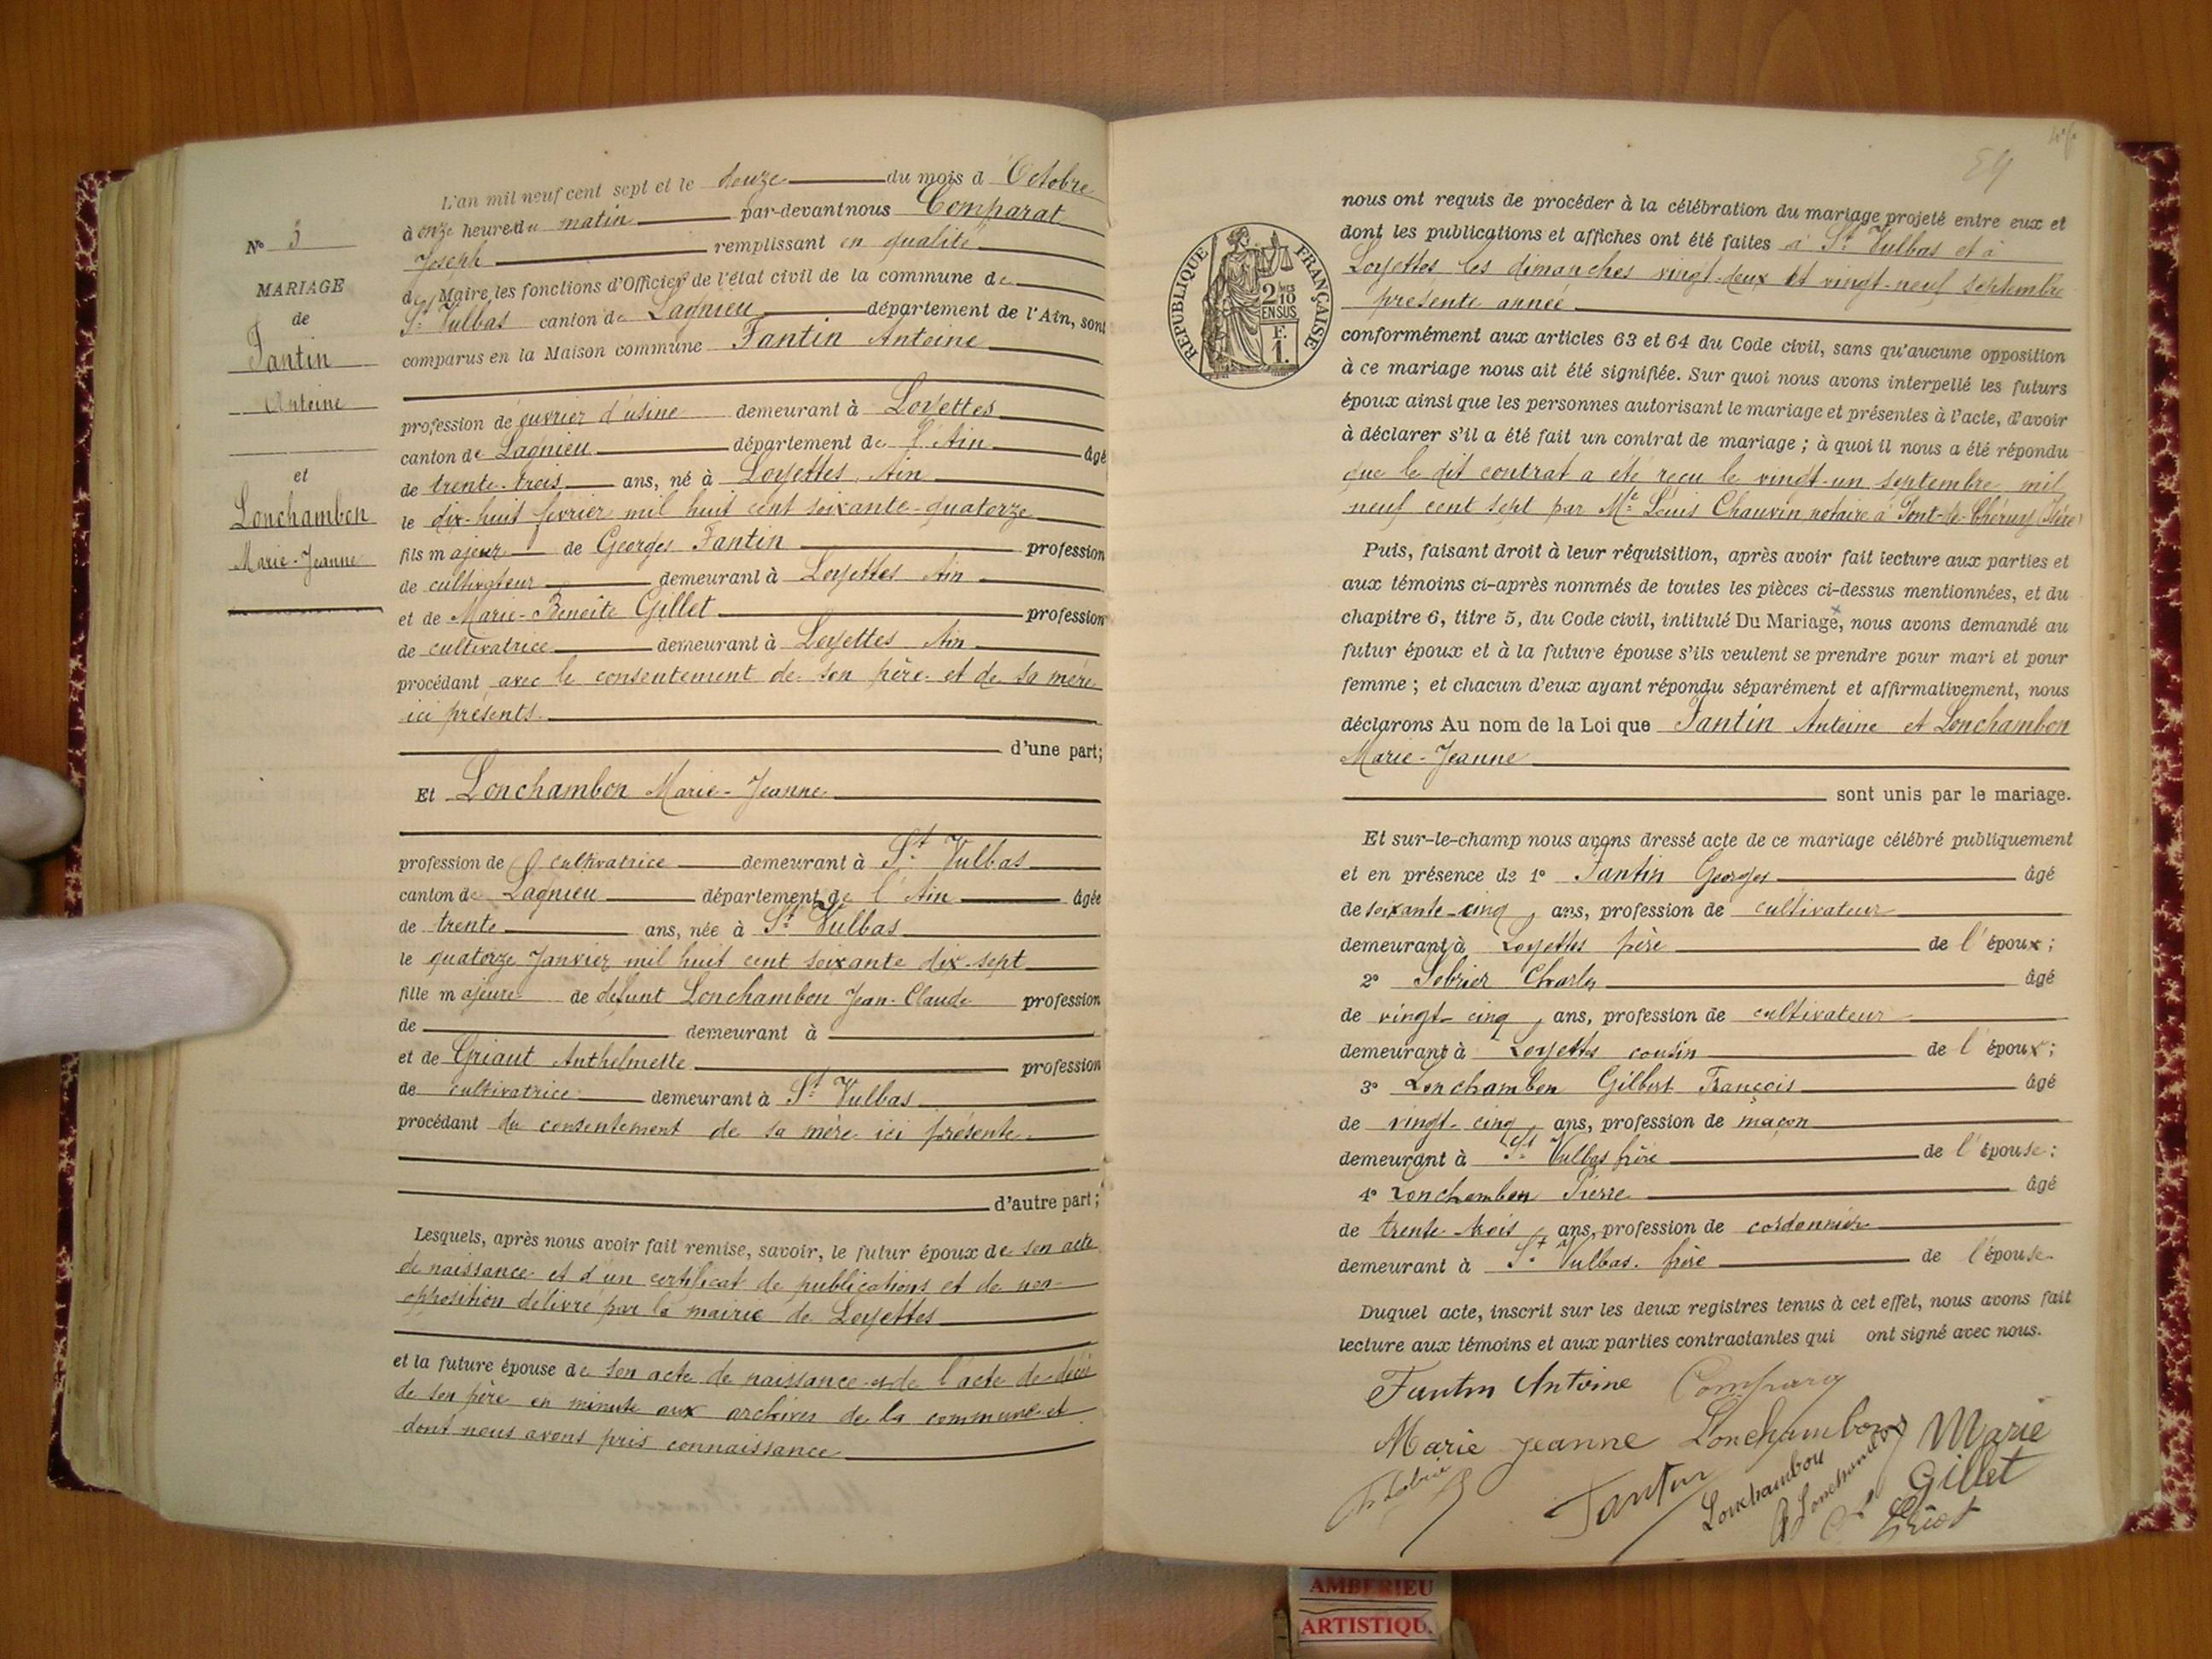 N° 3
MARIAGE
de
Fantin
Antoine
et
Lonchambon
Marie-Jeanne
L'an mil neuf cent sept et le douze du mois d'Octobre
à onze heures du matin par-devant nous Comparat
Joseph remplissant en qualité
de Maire, les fonctions d'Officier de l'état civil de la commune de
St Vulbas canton de Lagnieu département de l'Ain, sont
comparus en la Maison commune Fantin Antoine
profession de ouvrier d'usine demeurant à Loyettes
canton de Lagnieu département de l'Ain âgé
de trente-trois ans, né à Loyettes, Ain
le dix-huit février mil huit cent soixante-quatorze
fils majeur de Georges Fantin profession
de cultivateur demeurant à Loyettes Ain
et de Marie-Benoîte Gillet profession
de cultivatrice demeurant à Loyettes Ain
procédant avec le consentement de son père et de sa mère
ici présents.
d'une part;
Et Lonchambon Marie-Jeanne
profession de cultivatrice demeurant à St Vulbas
canton de Lagnieu département de l'Ain âgée
de trente ans, née à St Vulbas
le quatorze Janvier mil huit cent soixante dix-sept
fille majeure de défunt Lonchambon Jean-Claude profession
de demeurant à
et de Griaut Anthelmette profession
de cultivatrice demeurant à St Vulbas
procédant du consentement de sa mère ici présente.
d'autre part;
Lesquels, après nous avoir fait remise, savoir, le futur époux de son acte
de naissance et d'un certificat de publications et de non-
opposition délivré par la mairie de Loyettes
et la future épouse de son acte de naissance et de l'acte de décès
de son père en minute aux archives de la commune et
dont nous avons pris connaissance
59
RÉPUBLIQUE FRANÇAISE
2/10 EN SUS
F. 1.
nous ont requis de procéder à la célébration du mariage projeté entre eux et
dont les publications et affiches ont été faites à St Vulbas et à
Loyettes les dimanches vingt-deux et vingt-neuf septembre
présente année
conformément aux articles 63 et 64 du Code civil, sans qu'aucune opposition
à ce mariage nous ait été signifiée. Sur quoi nous avons interpellé les futurs
époux ainsi que les personnes autorisant le mariage et présentes à l'acte, d'avoir
à déclarer s'il a été fait un contrat de mariage; à quoi il nous a été répondu
que le dit contrat a été reçu le vingt-un septembre mil
neuf cent sept par Me Louis Chauvin, notaire à Pont-de-Chéruy (Isère)
Puis, faisant droit à leur réquisition, après avoir fait lecture aux parties et
aux témoins ci-après nommés de toutes les pièces ci-dessus mentionnées, et du
chapitre 6, titre 5, du Code civil, intitulé Du Mariage, nous avons demandé au
futur époux et à la future épouse s'ils veulent se prendre pour mari et pour
femme; et chacun d'eux ayant répondu séparément et affirmativement, nous
déclarons Au nom de la Loi que Fantin Antoine et Lonchambon
Marie-Jeanne
sont unis par le mariage.
Et sur-le-champ nous avons dressé acte de ce mariage célébré publiquement
et en présence de 1° Fantin Georges âgé
de soixante-cinq ans, profession de cultivateur
demeurant à Loyettes père de l'époux;
2° Sobrier Charles âgé
de vingt-cinq ans, profession de cultivateur
demeurant à Loyettes cousin de l'époux;
3° Lonchambon Gilbert François âgé
de vingt-cinq ans, profession de maçon
demeurant à St Vulbas frère de l'épouse;
4° Lonchambon Pierre âgé
de trente-trois ans, profession de cordonnier
demeurant à St Vulbas. frère de l'épouse
Duquel acte, inscrit sur les deux registres tenus à cet effet, nous avons fait
lecture aux témoins et aux parties contractantes qui ont signé avec nous.
Fantin Antoine
Marie Jeanne Lonchambon Marie
Fantin Lonchambon Lonchambon Gillet
AMBERIEU
ARTISTIQU